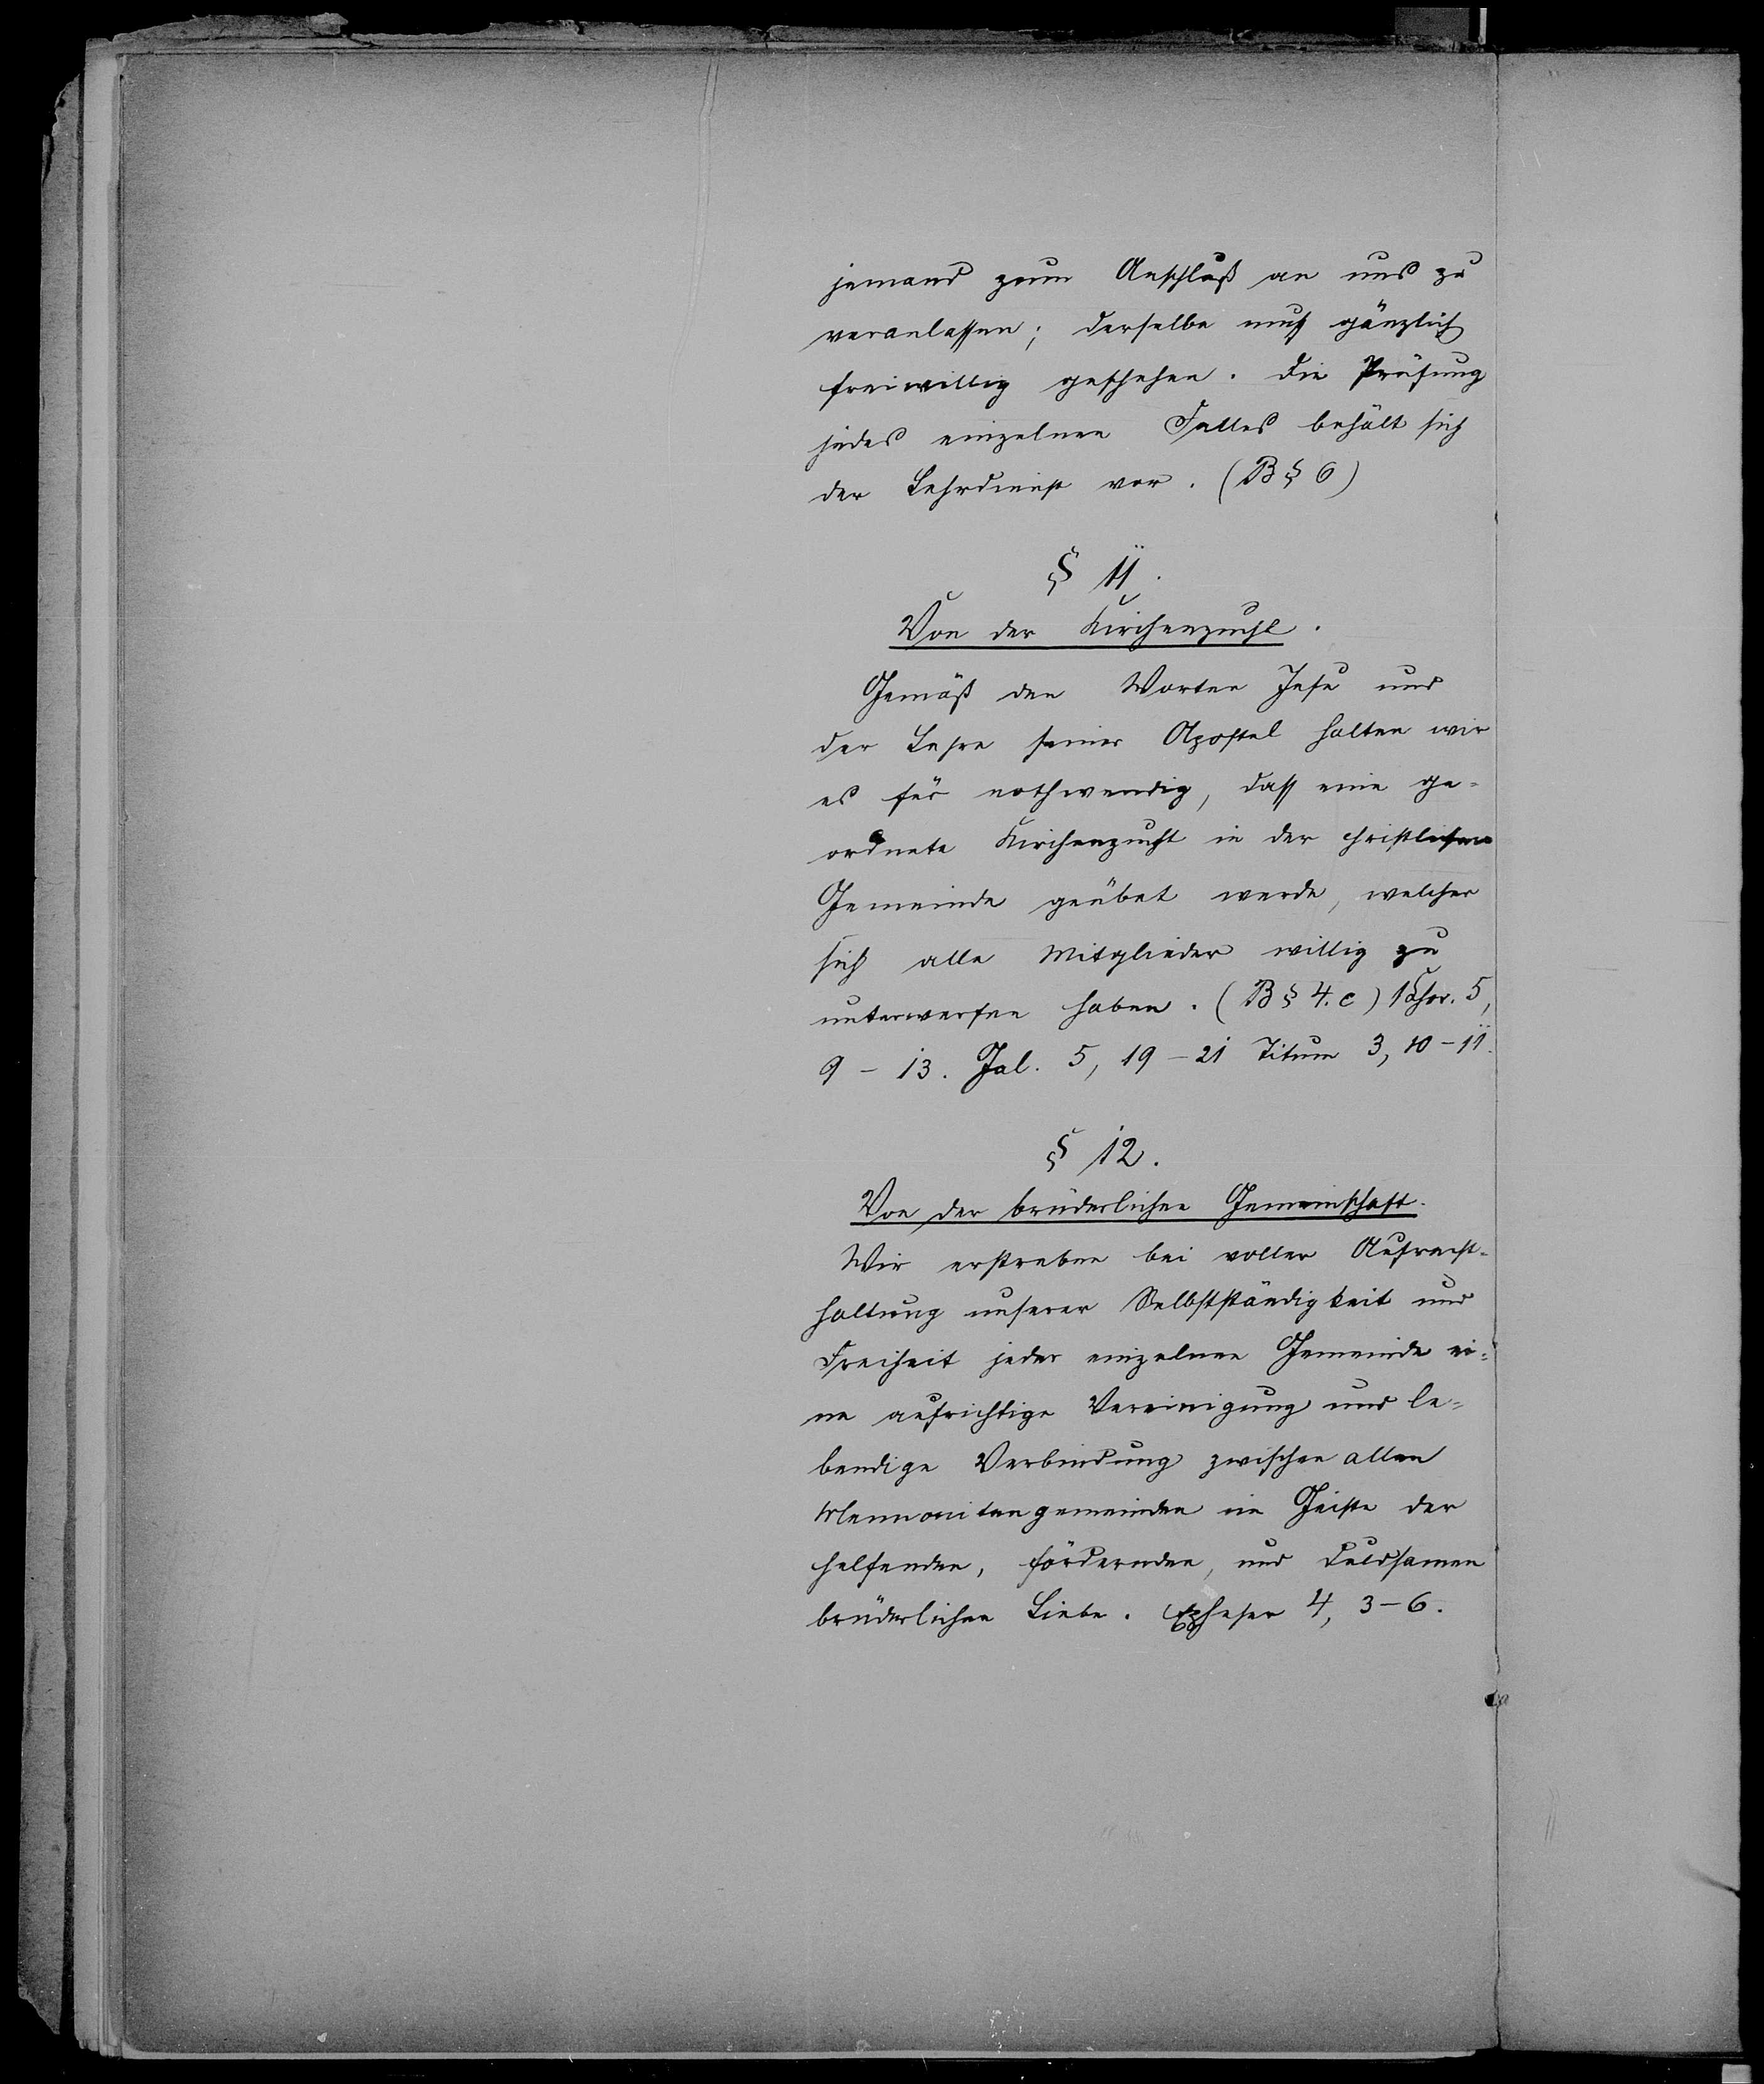 jemand zum Anschluß an uns zu
veranlassen; derselbe muß gänzlich
freiwillig geschehen. Die Prüfung
jedes einzelnen Falles behält sich
der Lehrdienst vor. (B § 6)
§ 11.
Von der Kirchenzucht.
Gemäß den Worten Jesu und
der Lehre seiner Apostel halten wir
es für nothwendig, dass eine ge-
ordnete Kirchenzucht in der christlichen
Gemeinde geübet werde, welcher
sich alle Mitglieder willig zu
unterwerfen haben. (B § 4. c) 1 Chor. 5,
9 - 13. Gal. 5, 19 - 21 Titum 3, 10 - 11.
§ 12.
Von der brüderlichen Gemeinschaft.
Wir erstreben bei voller Aufrecht-
haltung unserer Selbstständigkeit und
Freiheit jeder einzelnen Gemeinde ei-
ne aufrichtige Vereinigung und le-
bendige Verbindung zwischen allen
Mennonitengemeinden im Geiste der
helfenden, fördernden, und duldsamen
brüderlichen Liebe. Epheser 4, 3-6.